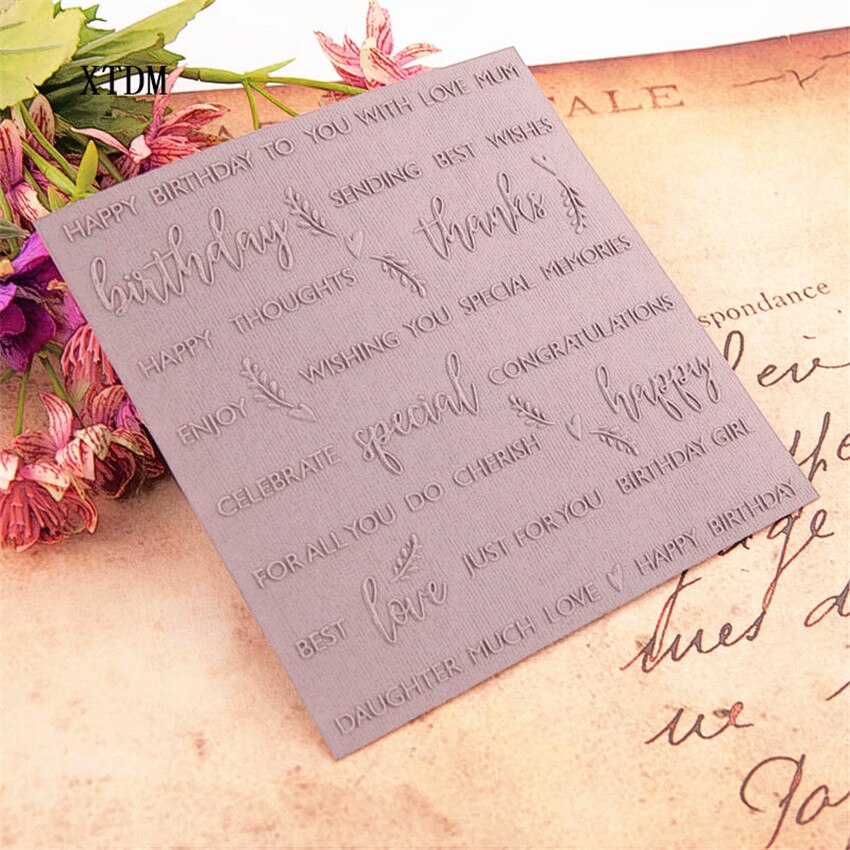 XTDM
HAPPY BIRTHDAY TO YOU WITH LOVE MUM
birthday SENDING BEST WISHES
thanks
HAPPY THOUGHTS
WISHING YOU SPECIAL MEMORIES
ENJOY
CONGRATULATIONS
CELEBRATE special happy
FOR ALL YOU DO CHERISH
JUST FOR YOU BIRTHDAY GIRL
BEST love
DAUGHTER MUCH LOVE HAPPY BIRTHDAY
ALE
spondance